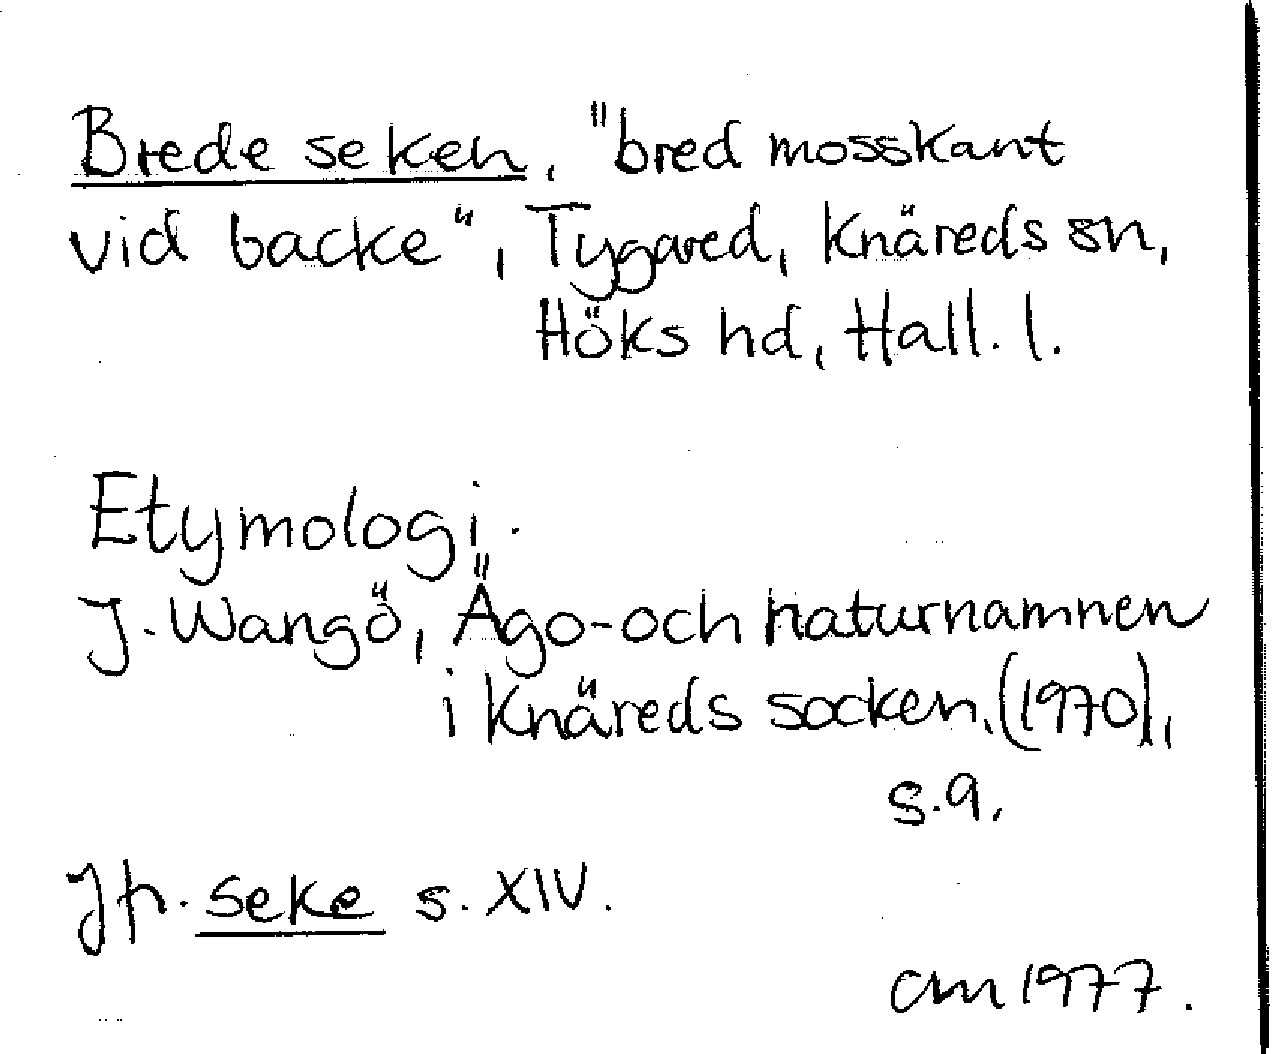 Brede seken, "bred mosskant
vid backe", Tygared, Knäreds sn,
Höks hd, Hall. l.
Etymologi.
J. Wangö, Ägo- och naturnamnen
i Knäreds socken, (1970),
s. 9.
Jfr. seke s. XIV.
cm 1977.